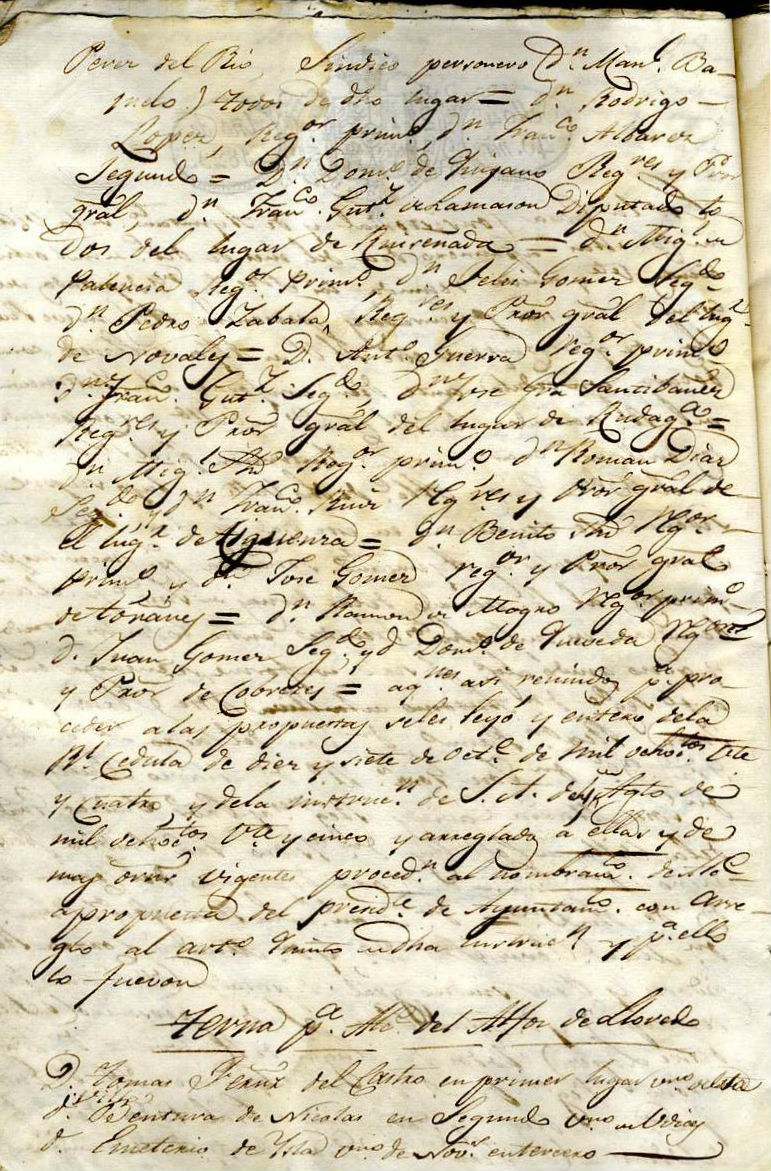 Perez del Rio, Sindico personero (dn. Manl. Ba-
ruelo) todos de dho lugar = dn. Rodrigo
Lopez, Regor. primo, dn Franco. Albarez
Segundo = Dn Domo. de Regres y Pror
gral, dn. Franco. Gutz. de Lamason Diputado to
dos del lugar de Ruiseñada = dn. Migl. de
Palencia Regor. Primo. dn Felix Gomez Segdo
dn. Pedro Zabala, Regres y Pror gral del lugr.
de Novales = D. Anto. Guerra Regor. primo
dn. Franco. Gutz. Segdo, dn Jose Gra Santibañez
Regres y Pror gral del lugar de Rudaga. =
dn. Migl. Regor. primo. dn Roman Diaz
Segdo y dn Franco. Ruiz Regres y Pror gral de
el lugr. de Cigüenza = dn. Benito Regor.
primo y dn. Jose Gomez regor. y Pror gral
de Toñanes = dn. Ramon de Regor. primo
d. Juan Gomez Segdo y d Domo. de Quevedo Regor
y Pror de Cobreces = aqnes asi reunidos pa. pro-
ceder a las propuestas se les leyó y entero dela
Rl. Cedula de diez y siete de Octe. de mil ochotos. Vte
y Cuatro, y dela instrucn. de S.A. de Agto de
mil ochoctos Vte y cinco y arreglados a ellas y de
mas orns vigentes procedn. al nombramto. de Ale
a propuesta del presidte de Ayuntamto. con arre-
glo al arto. quinto de dha instrucn y pa. ello
lo fueron
Terna pa. Ale. del Alfoz de Lloredo
D. Tomas Fernz del Castro en primer lugar vno.
d. Bentura de Nicolas en Segundo vno. de Udias
d. Emeterio de Isla vno. de Novs. en tercero